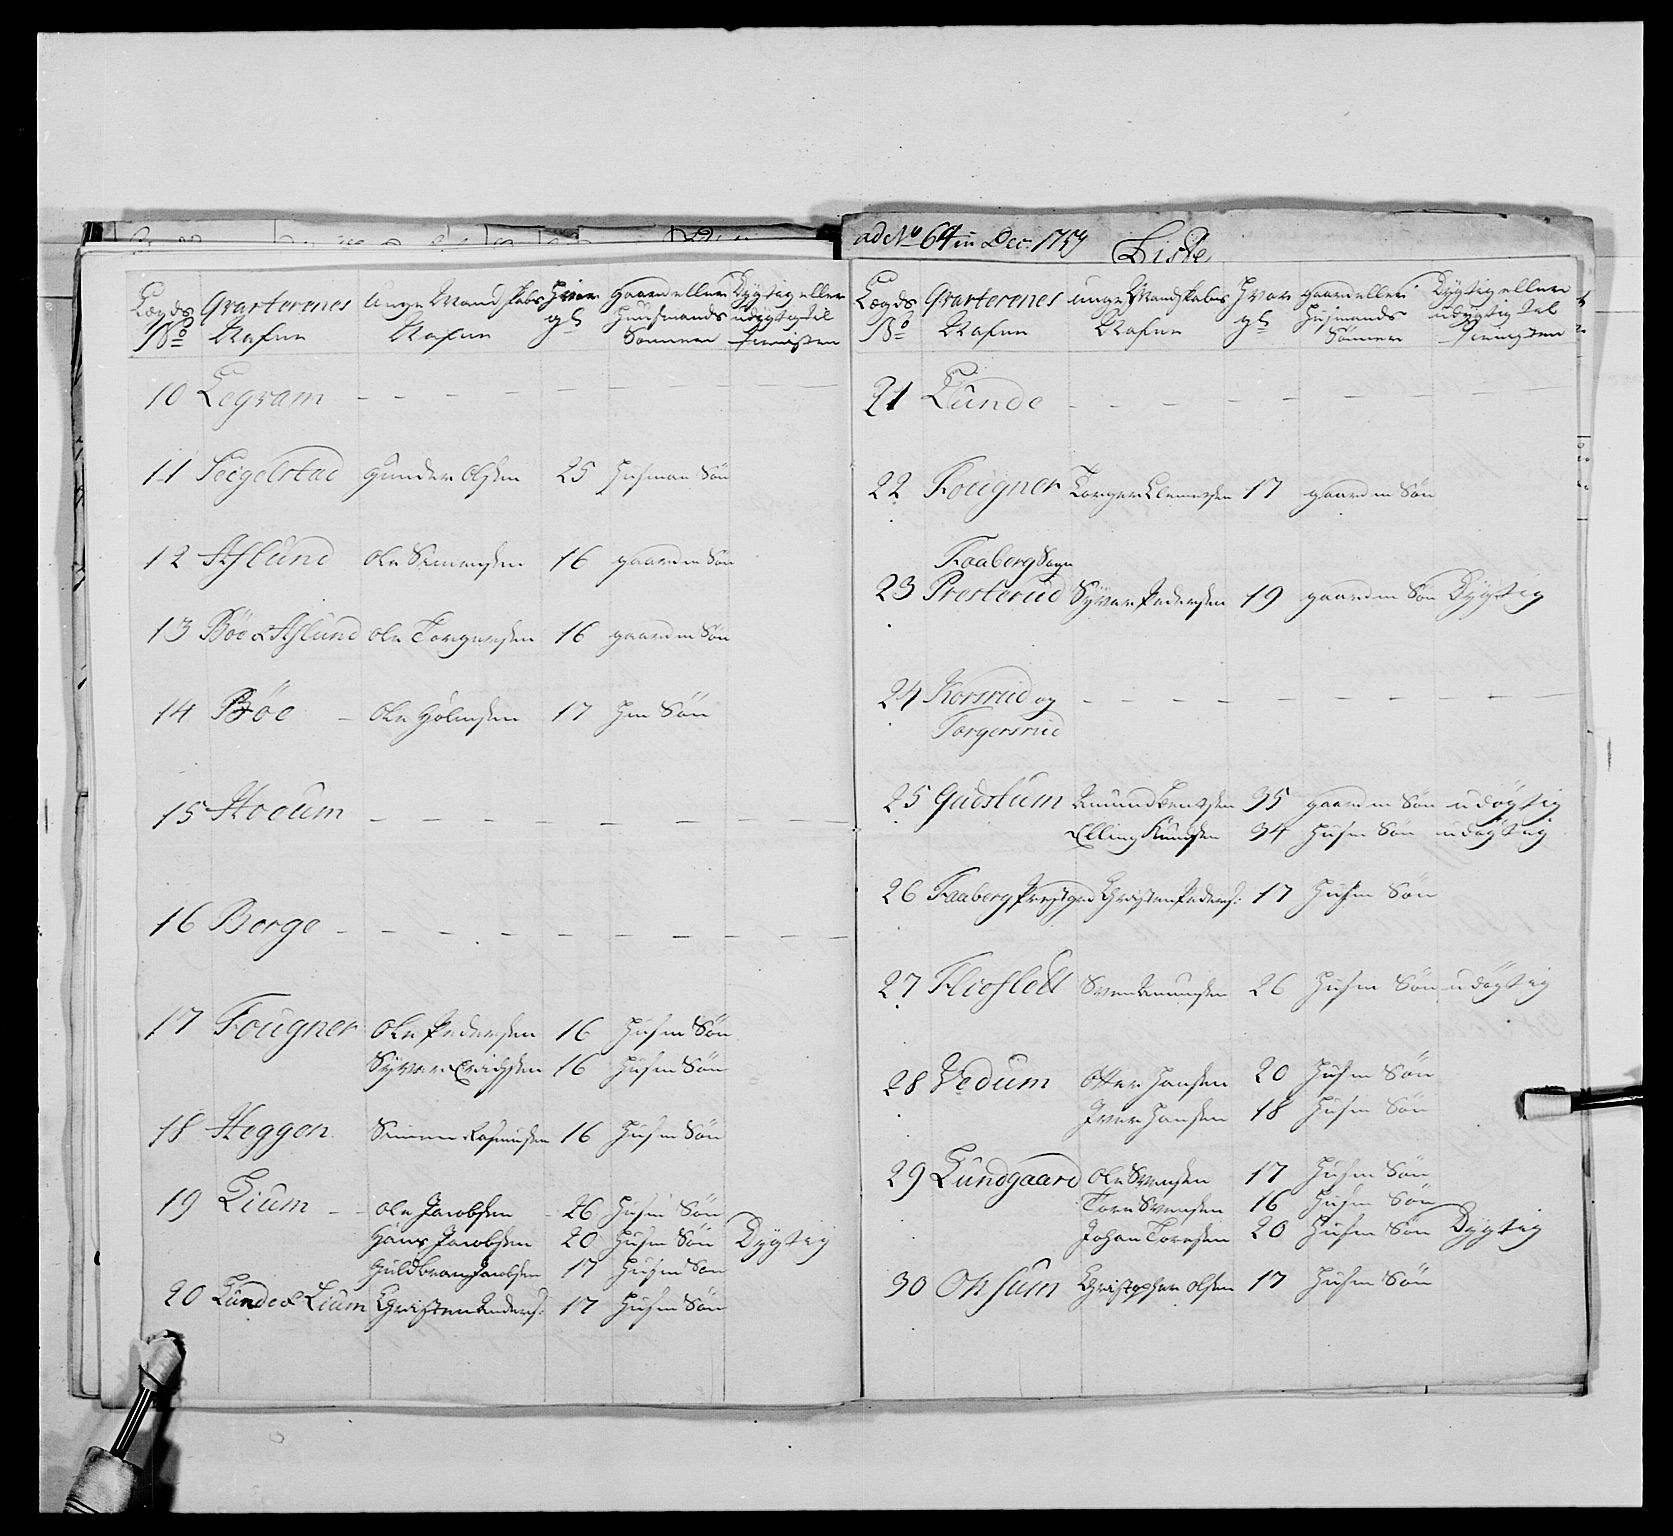 ad No 64 in Dec: 1754
Liste
Lægds No
Qvarterenes Nafne
Unge Mandskabs Nafne
Hvor gl
Gaard eller Huusmands Sønner
Dygtig eller udygtig til Tienisten
10 Legram - - - -
11 Seigelstad Gunder Olsen 25 Husman Søn
12 Aslund Ole Simensen 16 gaardm Søn
13 Böe & Aslund Ole Torgersen 16 gaardm Søn
14 Böe - Ole 17 Hm Søn
15 - - - -
16 Berge - - - -
17 Fougner Ole Pedersen 16 Husm Søn
Syver Erichsen 16 Husm Søn
18 Heggen Simen Rasmusen 16 Husm Søn
19 Lium - - Ole Jacobsen 26 Husm Søn
Hans Jacobsen 20 Husm Søn Dygtig
Guldbran Jacobsen 17 Husm Søn
20 Lunde & Lium Christen Anders: 17 Husm Søn
Lægds No
Qvarterenes Nafne
unge Mandskabs Nafne
Hvor gl
gaard eller Husmands Sønner
Dygtig eller udygtig til Tienisten
21 Lunde - - - -
22 Fougner Torger Clemetsen 17 gaardm Søn
Faaberg Sogn
23 Presterud Syver Pedersen 19 gaardm Søn Dygtig
24 Korsrud og - - - -
Torgersrud
25 Gudslum Amund 35 gaardm Søn udögtig
Elling Knudsen 34 Husm Søn udögtig
26 Faaberg Prestgrd Christen Peders: 17 Husm Søn
27 Svend Amunsen 26 Husm Søn udögtig
28 Vedum Otter Hansen 20 Husm Søn
Iver Hansen 18 Husm Søn
29 Lundgaard Ole Svensen 17 Husm Søn
Tore Svensen 16 Husm Søn
Johan Toresen 20 Husm Søn Dygtig
30 Onsum Christopher Olsen 17 Husm Søn